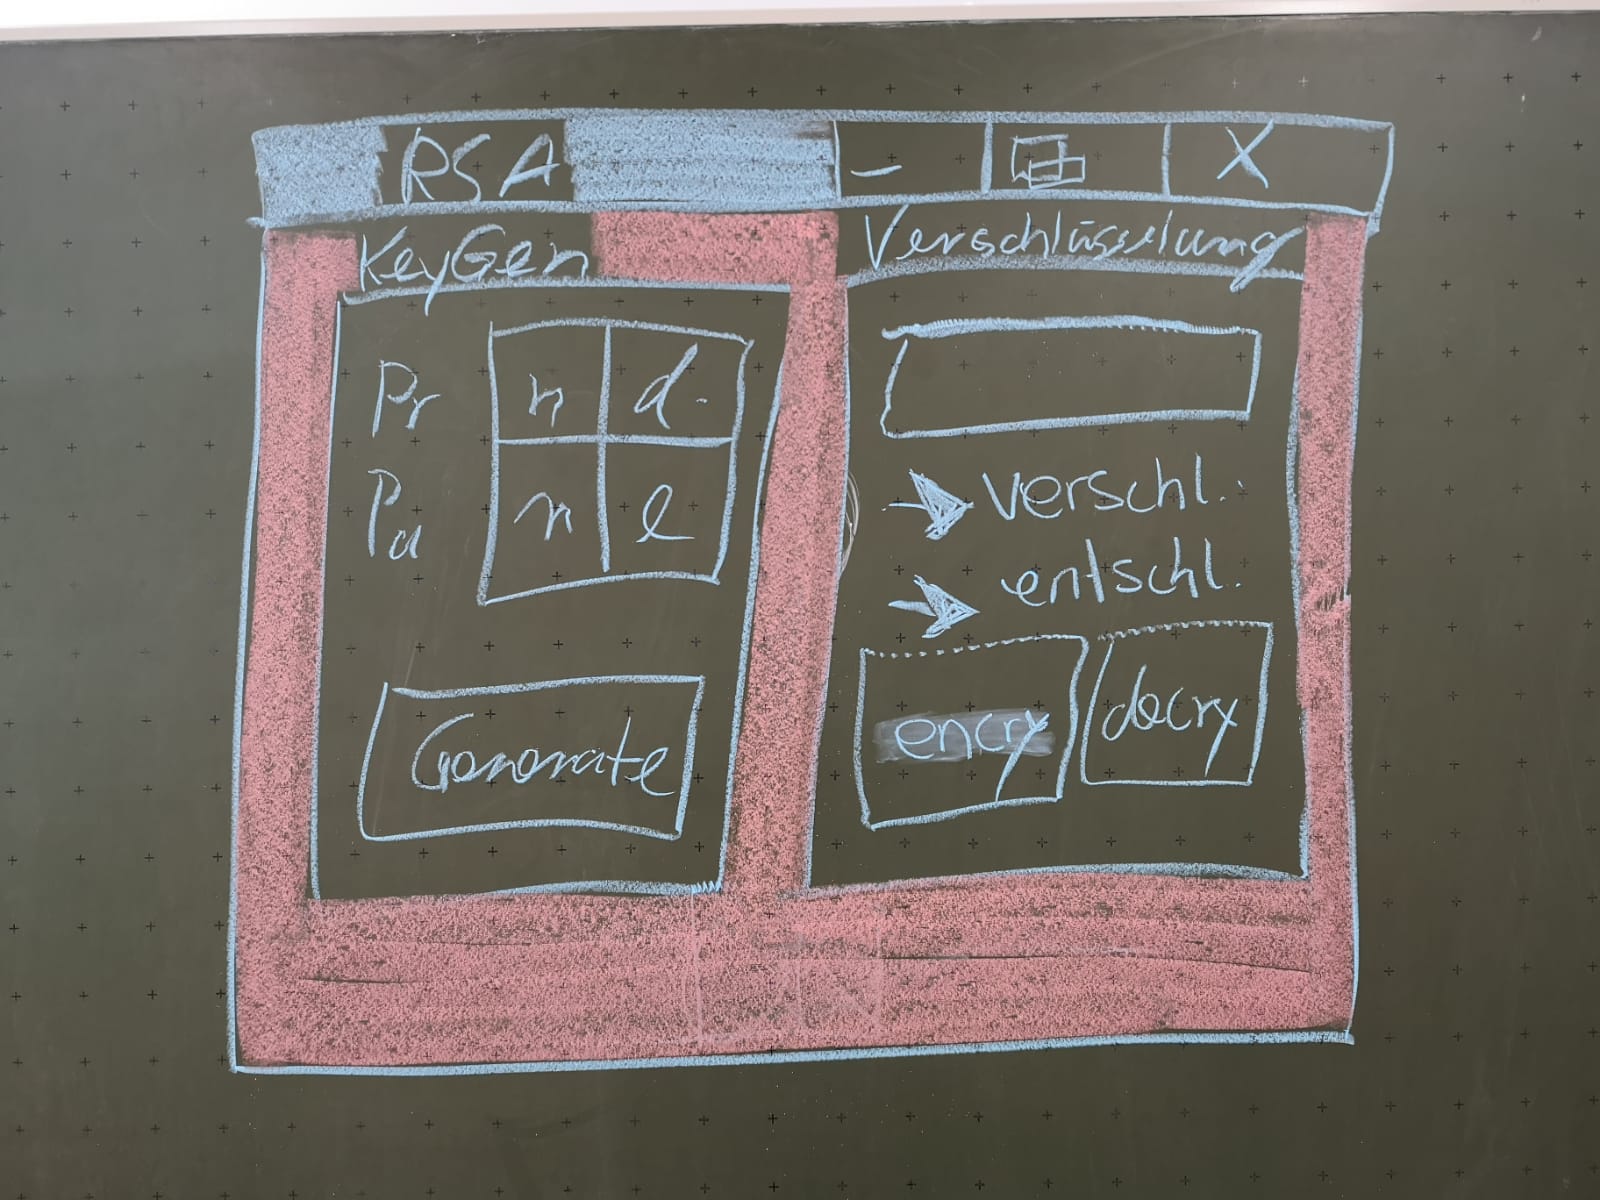 RSA - X
KeyGen
Pr n d
Pu n e
Generate
Verschlüsselung
verschl.
entschl.
encry decry